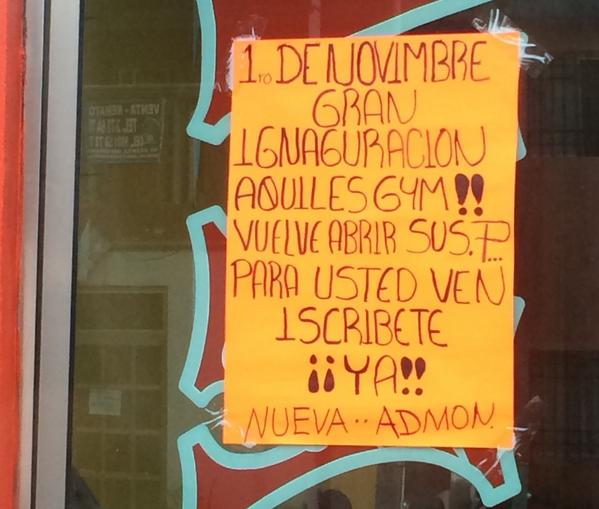 1ro DE NOVIMBRE
GRAN
IGNAGURACION
AQUILES GYM !!
VUELVE ABRIR SUS. P...
PARA USTED VEN
ISCRIBETE
¡¡YA!!
NUEVA·· ADMON.
VENTA - RENTA
TEL.